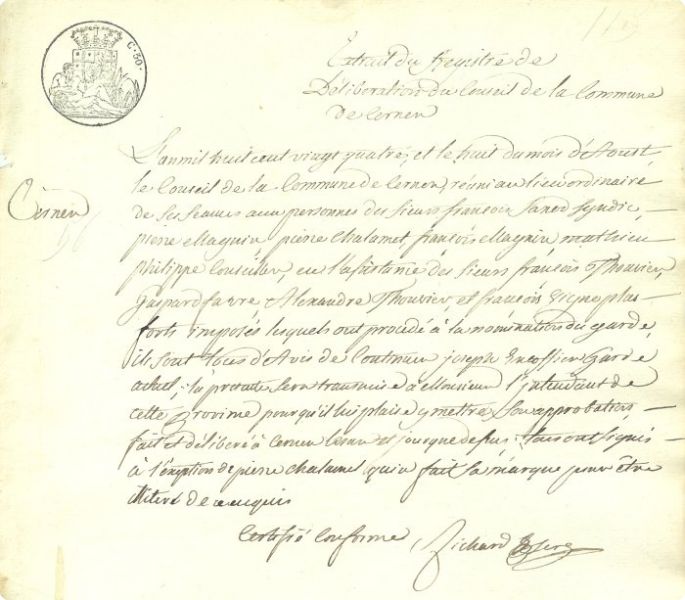 C. 50.
Extrait du Registre de
Délibération du Conseil de la Commune
de Cernex
L'an mil huit cent vingt quatre, et le huit du mois d'Aoust,
Cernex
le Conseil de la Commune de Cernex, réuni au lieu ordinaire
de ses séances aux personnes des sieurs françois Syndic,
pierre Magnin pierre Chalamet, françois Magnin, mathieu
philippe Conseiller, en l'assistance des sieurs françois Thouvier,
Gaspard favre Alexandre Thouvier, et françois plus
forts imposés lesquels ont procédé à la nomination du garde,
ils sont tous d'Avis de Continuer joseph Garde
actuel; la présente sera transmise à Monsieur l'intendant de
cette province pour qu'il lui plaise y mettre son approbation
fait et délibéré à Cernex l'an et jour que dessus: tous ont signés
à l'éxeption de pierre Chalamet qui a fait sa marque pour être
illiteré de ce enquis
Certifié Conforme Richard